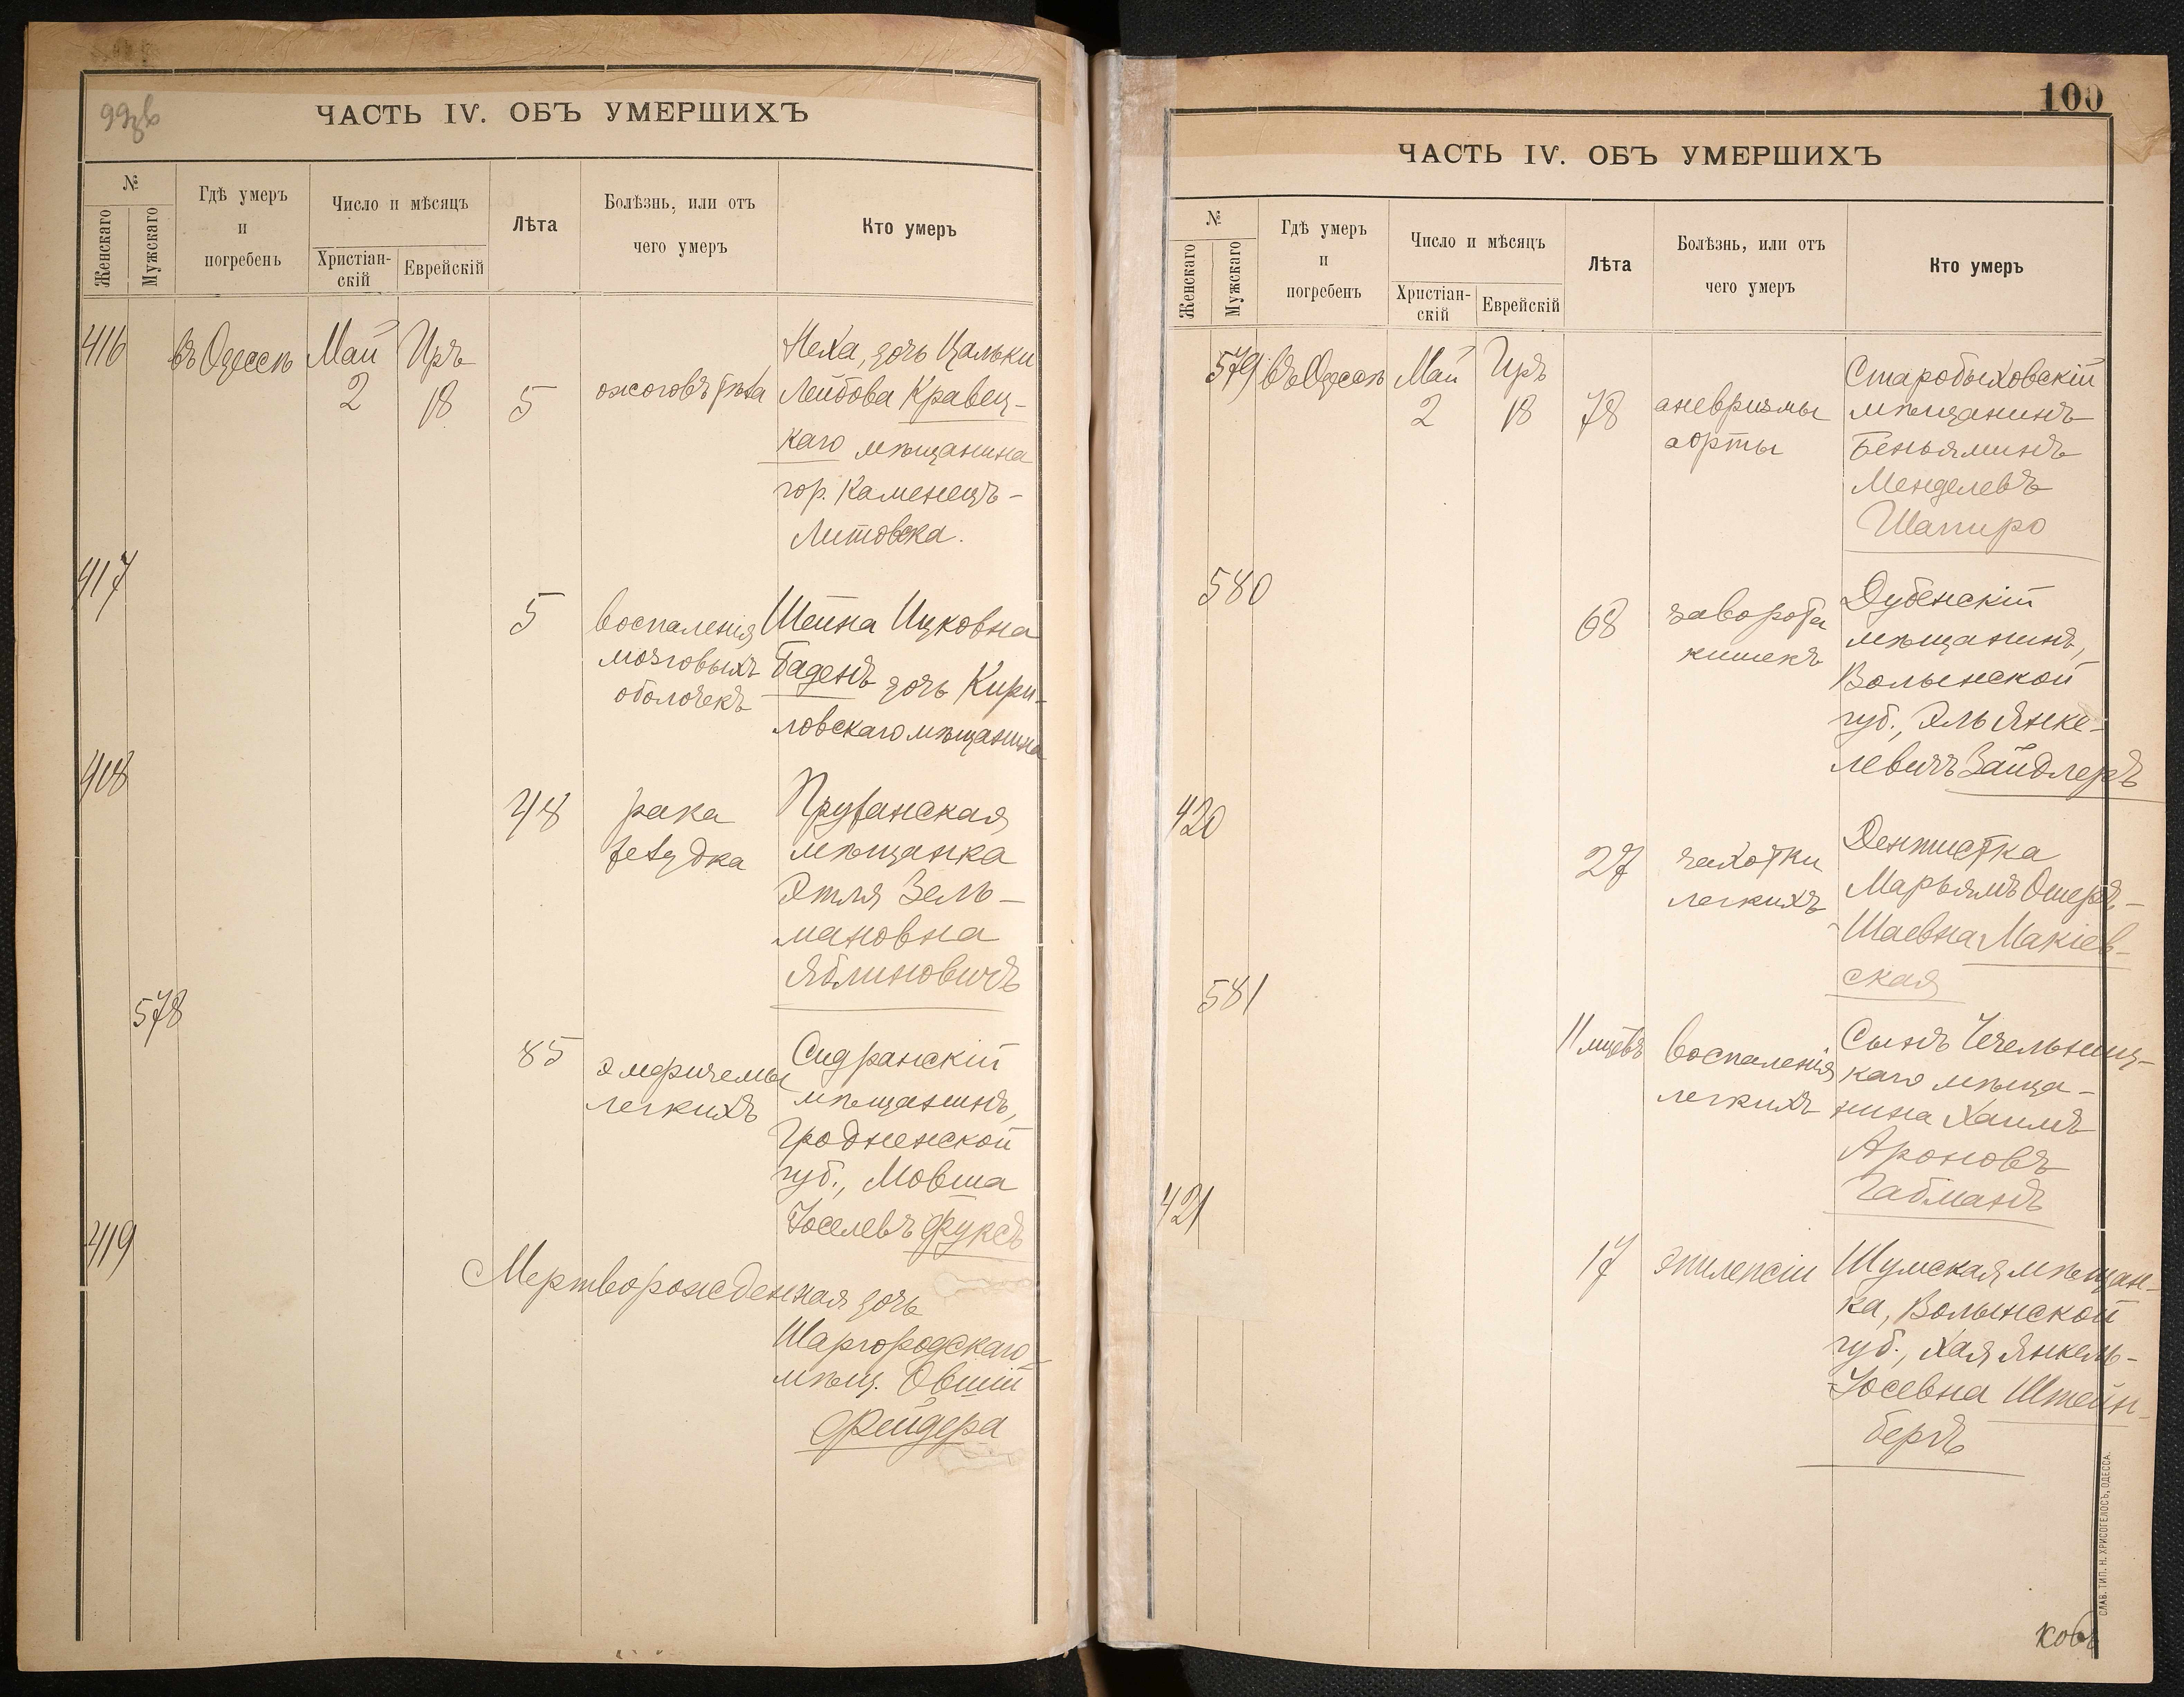 ЧАСТЬ IV. ОБЪ УМЕРШИХЪ
№
Женскаго
Мужскаго
Гдѣ умеръ
и
погребенъ
Число и мѣсяцъ
Христіан-
скій
Еврейскій
Лѣта
Болѣзнь, или отъ
чего умеръ
Кто умеръ
416
въ Одессѣ
Май
2
Иръ
18
5
ожоговъ тѣла
Неха, дочь Цальки
Лейбова Кравец-
каго мѣщанина
гор. Каменецъ-
Литовска.
417
5
воспаленія
мозговыхъ
оболочекъ
Шейна Ицковна
Баденъ дочь Кири-
ловскаго мѣщанина
418
48
рака
желудка
Пружанская
мѣщанка
Этля Зель-
мановна
Яблиновичъ
578
85
эмфиземы
легкихъ
Сидранскій
мѣщанинъ,
Гродненской
губ., Мовша
Іоселевъ Фуксъ
419
Мертворожденная дочь
Шаргородскаго
мѣщ. Овшій
Фейдера
100
ЧАСТЬ IV. ОБЪ УМЕРШИХЪ
№
Женскаго
Мужскаго
Гдѣ умеръ
и
погребенъ
Число и мѣсяцъ
Христіан-
скій
Еврейскій
Лѣта
Болѣзнь, или отъ
чего умеръ
Кто умеръ
579
въ Одессѣ
Май
2
Иръ
18
78
аневризмы
аорты
Старобыховскій
мѣщанинъ
Беньяминъ
Менделевъ
Шапиро
580
68
заворота
кишекъ
Дубенскій
мѣщанинъ,
Волынской
губ., Эль Янке-
левичъ Зайдлеръ
420
27
чахотки
легкихъ
Дентистка
Марьямъ Ошеръ-
Шаевна Макіев-
ская
581
11 мцевъ
воспаленія
легкихъ
Сынъ Чечельниц-
каго мѣща-
нина Хаимъ
Ароновъ
Габманъ
421
17
эпилепсіи
Шумская мѣщан-
ка, Волынской
губ., Хая Янкель-
Іосевна Штейн-
бергъ
СЛАВ. ТИП. Н. ХРИСОГЕЛОСЪ, ОДЕССА.